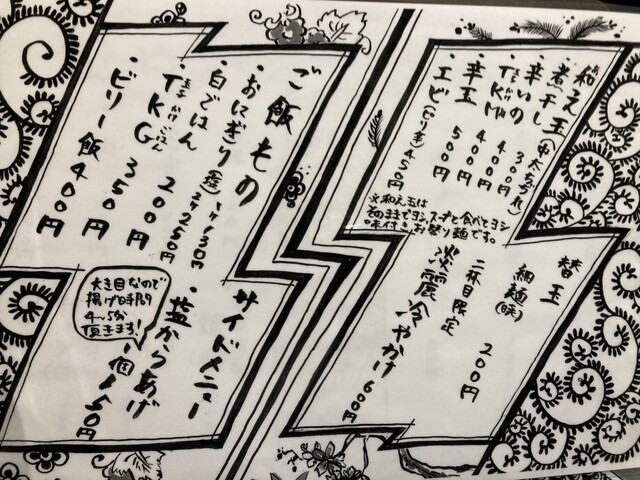 和え玉
・煮干し(中太ちぢれ)
・辛いの 300円
・TKM 400円
・辛玉 400円
・エビ(ピリ辛) 500円
450円
※和え玉は
そのままでヨシスープと食べてヨシ
味付きお祭り麺です。
替玉
細麺(味) 200円
二杯目限定
淡麗冷やかけ 600円
ご飯もの
・おにぎり(塩) 1ヶ130円 2ヶ250円
・白ごはん 200円
玉子かけごはん
・TKG 350円
・ビリー飯 400円
サイドメニュー
・塩からあげ
1個150円
大き目なので
揚げ時間
4〜5分
頂きます!